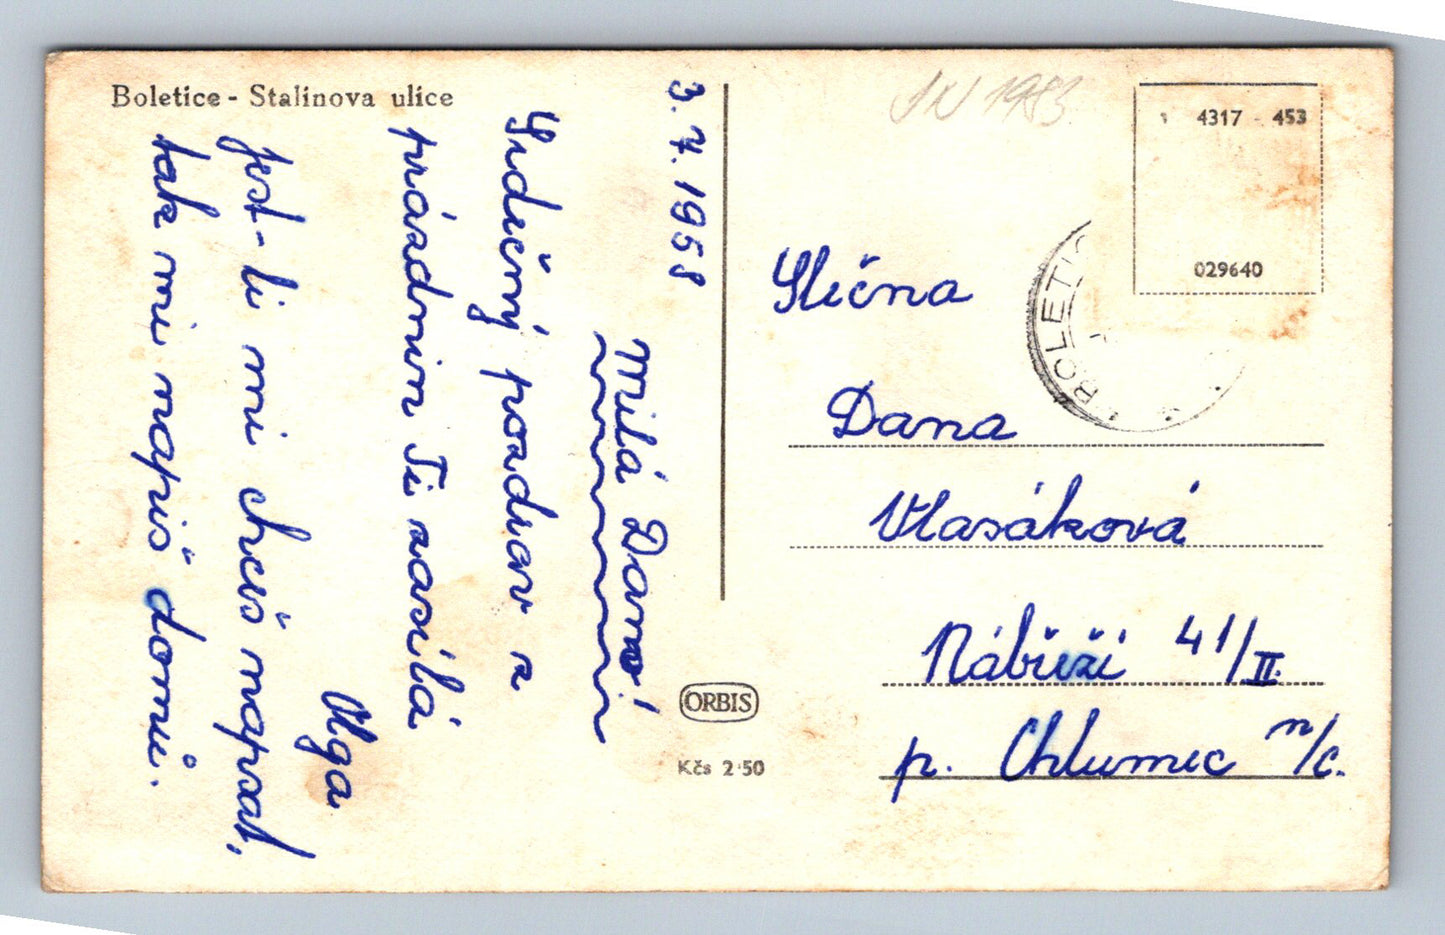 Boletice - Stalinova ulice
3. 7. 1958
Milá Dano!
Srdečný pozdrav z
prázdnin Ti zasílá
Olga
jest-li mi chceš napsat,
tak mi napiš domů.
ORBIS
Kčs 2·50
4317 453
029640
BOLETIC
Slečna
Dana
Vlasáková
Nábřeží 41/II.
p. Chlumec n/c.